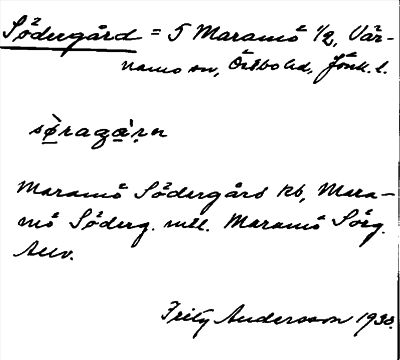 Södergård = 5 Maramö 1/2, Vär-
namo sn, Östbo hd, Jönk. l.
sø̀raga̱ṛn
Maramö Södergård kb, Mara-
mö Söderg. mtl. Maramö Sörg.
Allv.
Fritz Andersson 1930.